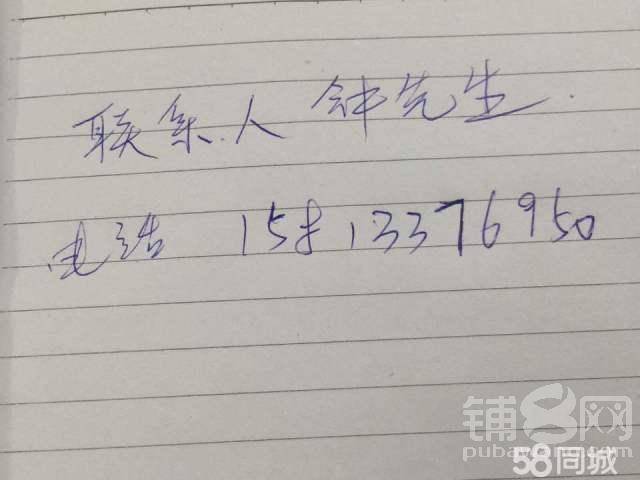 联系人 钟先生.
电话 15813376950
铺多网
pubaiwang.com
58同城